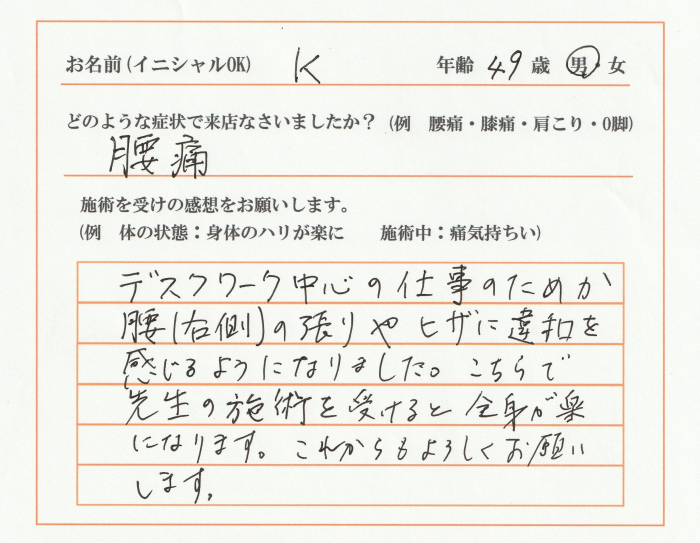 お名前(イニシャルOK) K 年齢 49 歳 男・女
どのような症状で来店なさいましたか？ (例 腰痛・膝痛・肩こり・O脚)
腰痛
施術を受けの感想をお願いします。
(例 体の状態：身体のハリが楽に 施術中：痛気持ちい)
デスクワーク中心の仕事のためか
腰(右側)の張りやヒザに違和を
感じるようになりました。こちらで
先生の施術を受けると全身が楽
になります。これからもよろしくお願い
します。